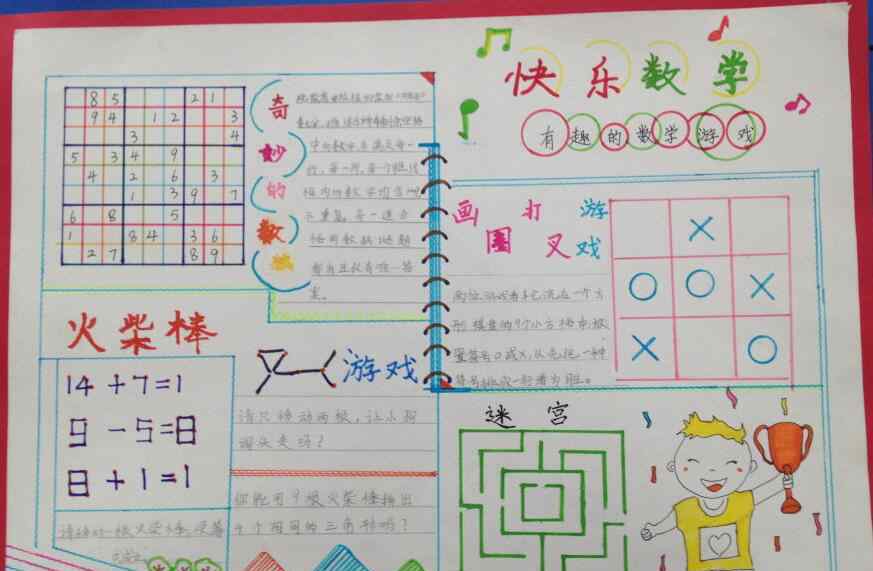 快乐数学
有趣的数学游戏
奇妙的数独
8 5 2 1
9 4 1 2 3
3 4
5 3 4 9
4 2 6 3
1 3 9 7
6 8 5
1 8 4 3 6
2 7 8 9
中的数字且满足每一
行,每一列,每个粗线
宫内的数字均含1-9
不重复。每一道合
格的数独谜题
都有且仅有唯一答
案。
画圈打叉游戏
两位游戏者轮流在一个方
形棋盘的9个小方格中放
置符号O或X,从先把一种
符号排成一行者为胜。
X
O O X
X O
火柴棒
游戏
14+7=1
9-5=8
8+1=1
请移动一根火柴棒,使等
请只移动两根,让小狗
调头走吗?
你能用9根火柴棒拼出
个相同的三角形吗?
迷宫